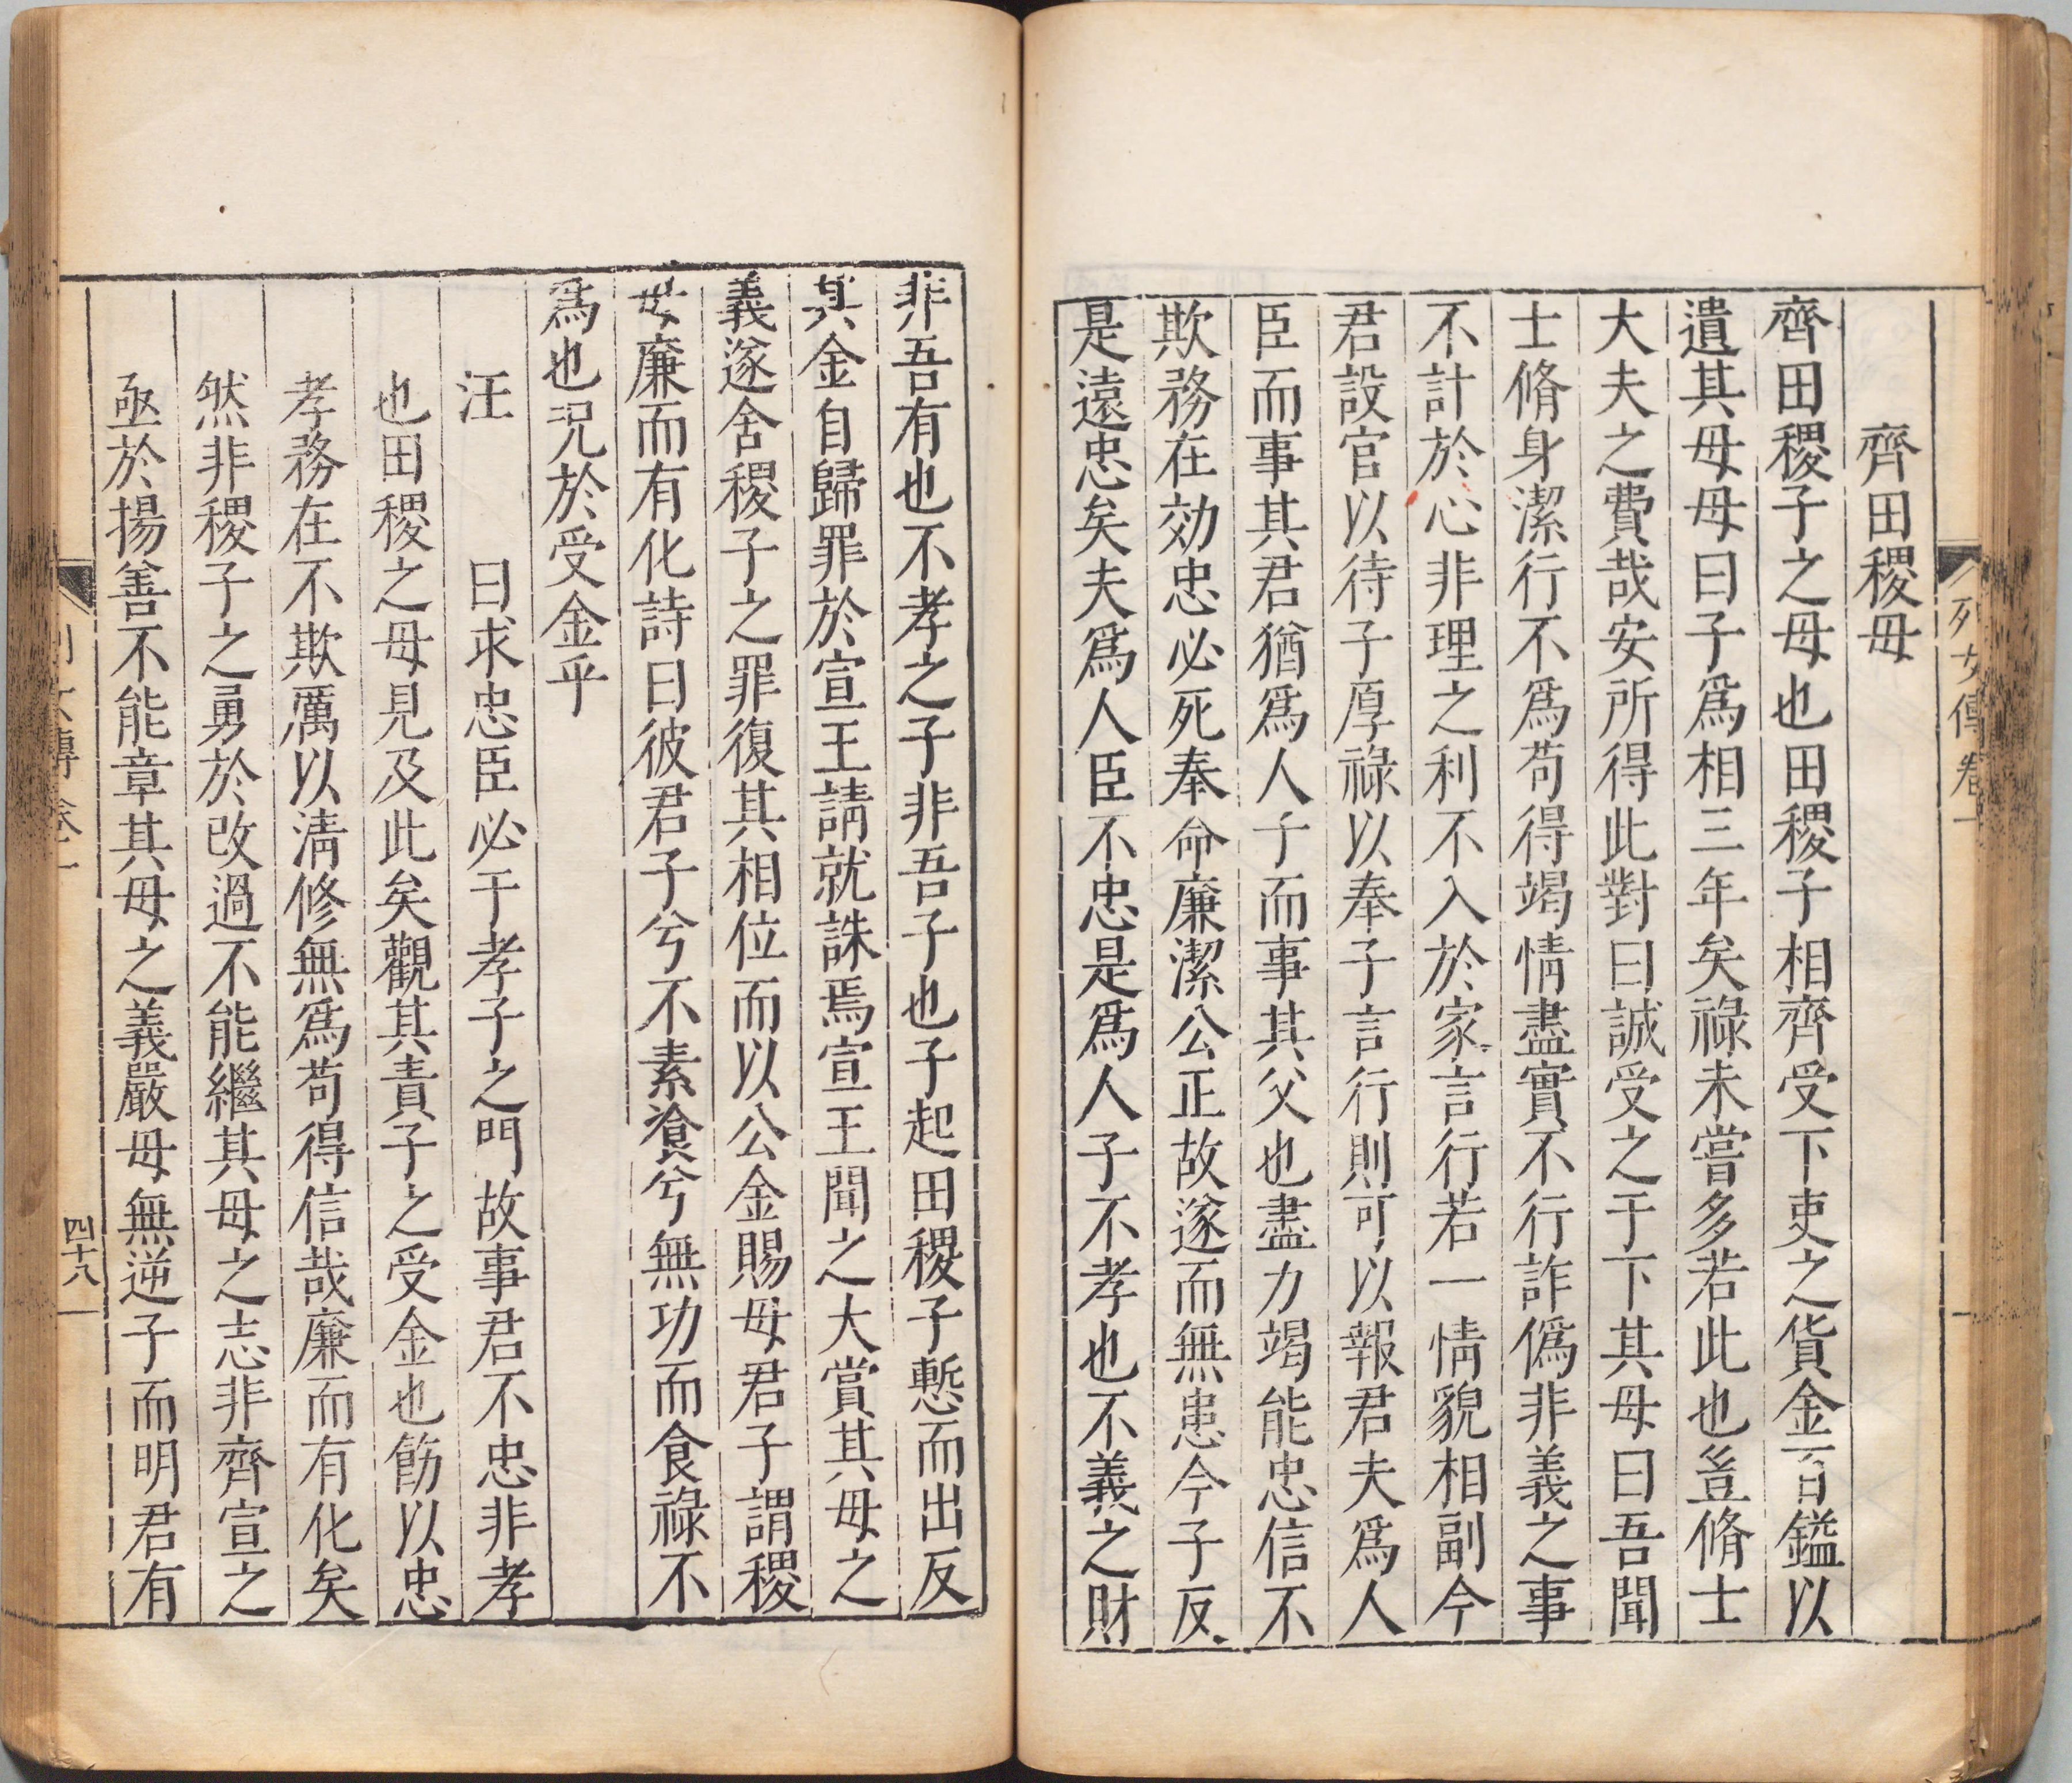 列女傳卷一
齊田稷母
齊田稷子之母也田稷子相齊受下吏之貨金百鎰以
遺其母母曰子爲相三年矣祿未嘗多若此也豈脩士
大夫之費哉安所得此對曰誠受之于下其母曰吾聞
士脩身潔行不爲苟得竭情盡實不行詐僞非義之事
不計於心非理之利不入於家言行若一情貌相副今
君設官以待子厚祿以奉子言行則可以報君夫爲人
臣而事其君猶爲人子而事其父也盡力竭能忠信不
欺務在効忠必死奉命廉潔公正故遂而無患今子反
是遠忠矣夫爲人臣不忠是爲人子不孝也不義之財
非吾有也不孝之子非吾子也子起田稷子慙而出反
其金自歸罪於宣王請就誅焉宣王聞之大賞其母之
義遂舍稷子之罪復其相位而以公金賜母君子謂稷
母廉而有化詩曰彼君子兮不素飡兮無功而食祿不
爲也況於受金乎
汪 曰求忠臣必于孝子之門故事君不忠非孝
也田稷之母見及此矣觀其責子之受金也飭以忠
孝務在不欺厲以清修無爲苟得信哉廉而有化矣
然非稷子之勇於改過不能繼其母之志非齊宣之
亟於揚善不能章其母之義嚴母無逆子而明君有
列女傳卷一 四十八